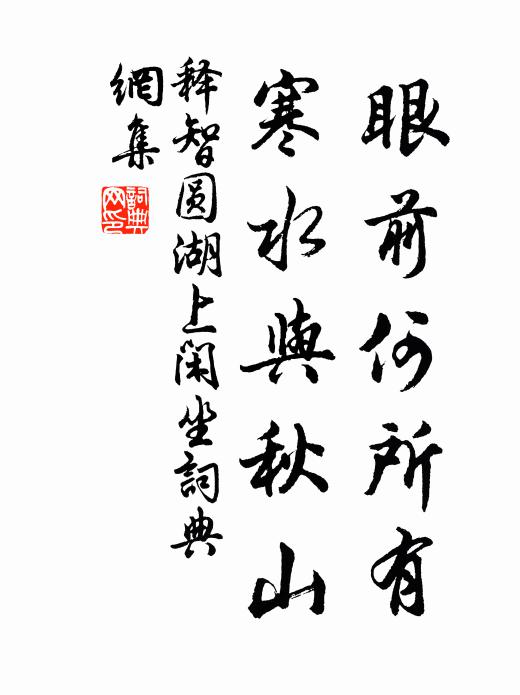 眼前何所有
寒水與秋山
释智圆湖上闲坐詞典
網集
詞典網印